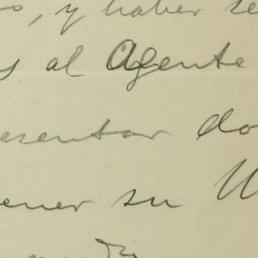 , y haber se
al Agente
esentar do
ener su